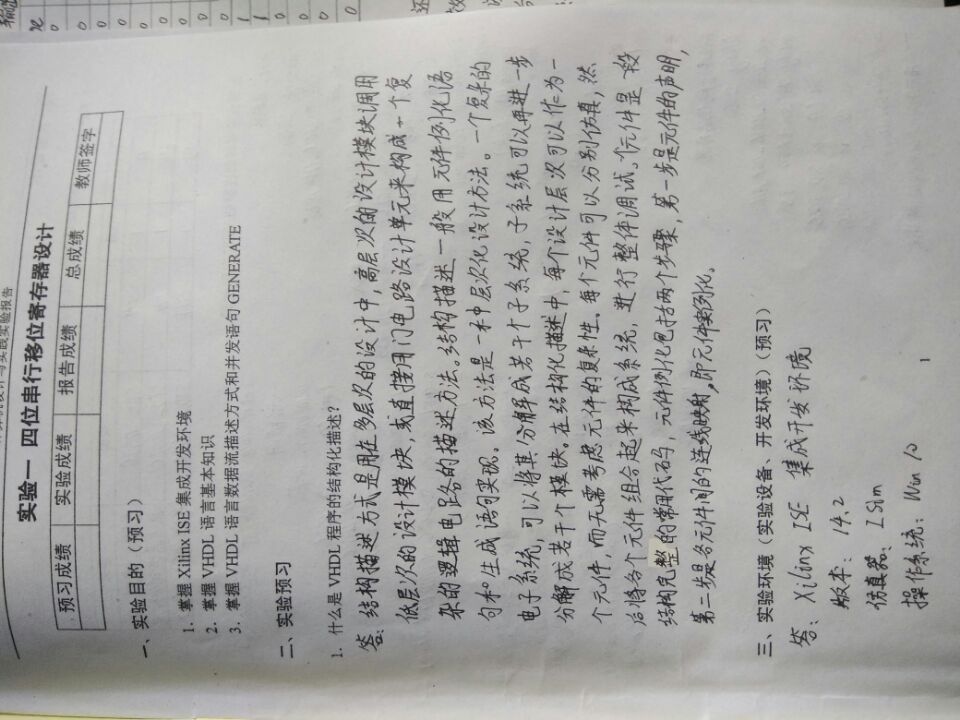 算机设计与实践实验报告
实验一 四位串行移位寄存器设计
预习成绩 实验成绩 报告成绩 总成绩 教师签字
一、实验目的（预习）
1．掌握 Xilinx ISE 集成开发环境
2．掌握 VHDL 语言基本知识
3．掌握 VHDL 语言数据流描述方式和并发语句 GENERATE
二、实验预习
1．什么是 VHDL 程序的结构化描述？
答：结构描述方式是用在多层次的设计中，高层次的设计模块调用
低层次的设计模块，或直接用门电路设计单元来构成一个复
杂的逻辑电路的描述方法。结构描述一般用元件例化语
句和生成语句实现。该方法是一种层次化设计方法。一个复杂的
电子系统，可以将其分解成若干个子系统，子系统可以再进一步
分解成若干个模块。在结构化描述中，每个设计层次可以作为一
个元件，而无需考虑元件的复杂性。每个元件可以分别仿真，然
后将各个元件组合起来构成系统，进行整体调试。个元件是一段
结构完整的常用代码，元件例化包括两个步骤，第一步是元件的声明，
第二步是各元件间的连线映射，即元件实例化。
三、实验环境（实验设备、开发环境）（预习）
答：Xilinx ISE 集成开发环境
版本：14.2
仿真器：ISim
操作系统：Win 10
1
0
0
0
0
0
0
0
0
1
1
0
0
0
0